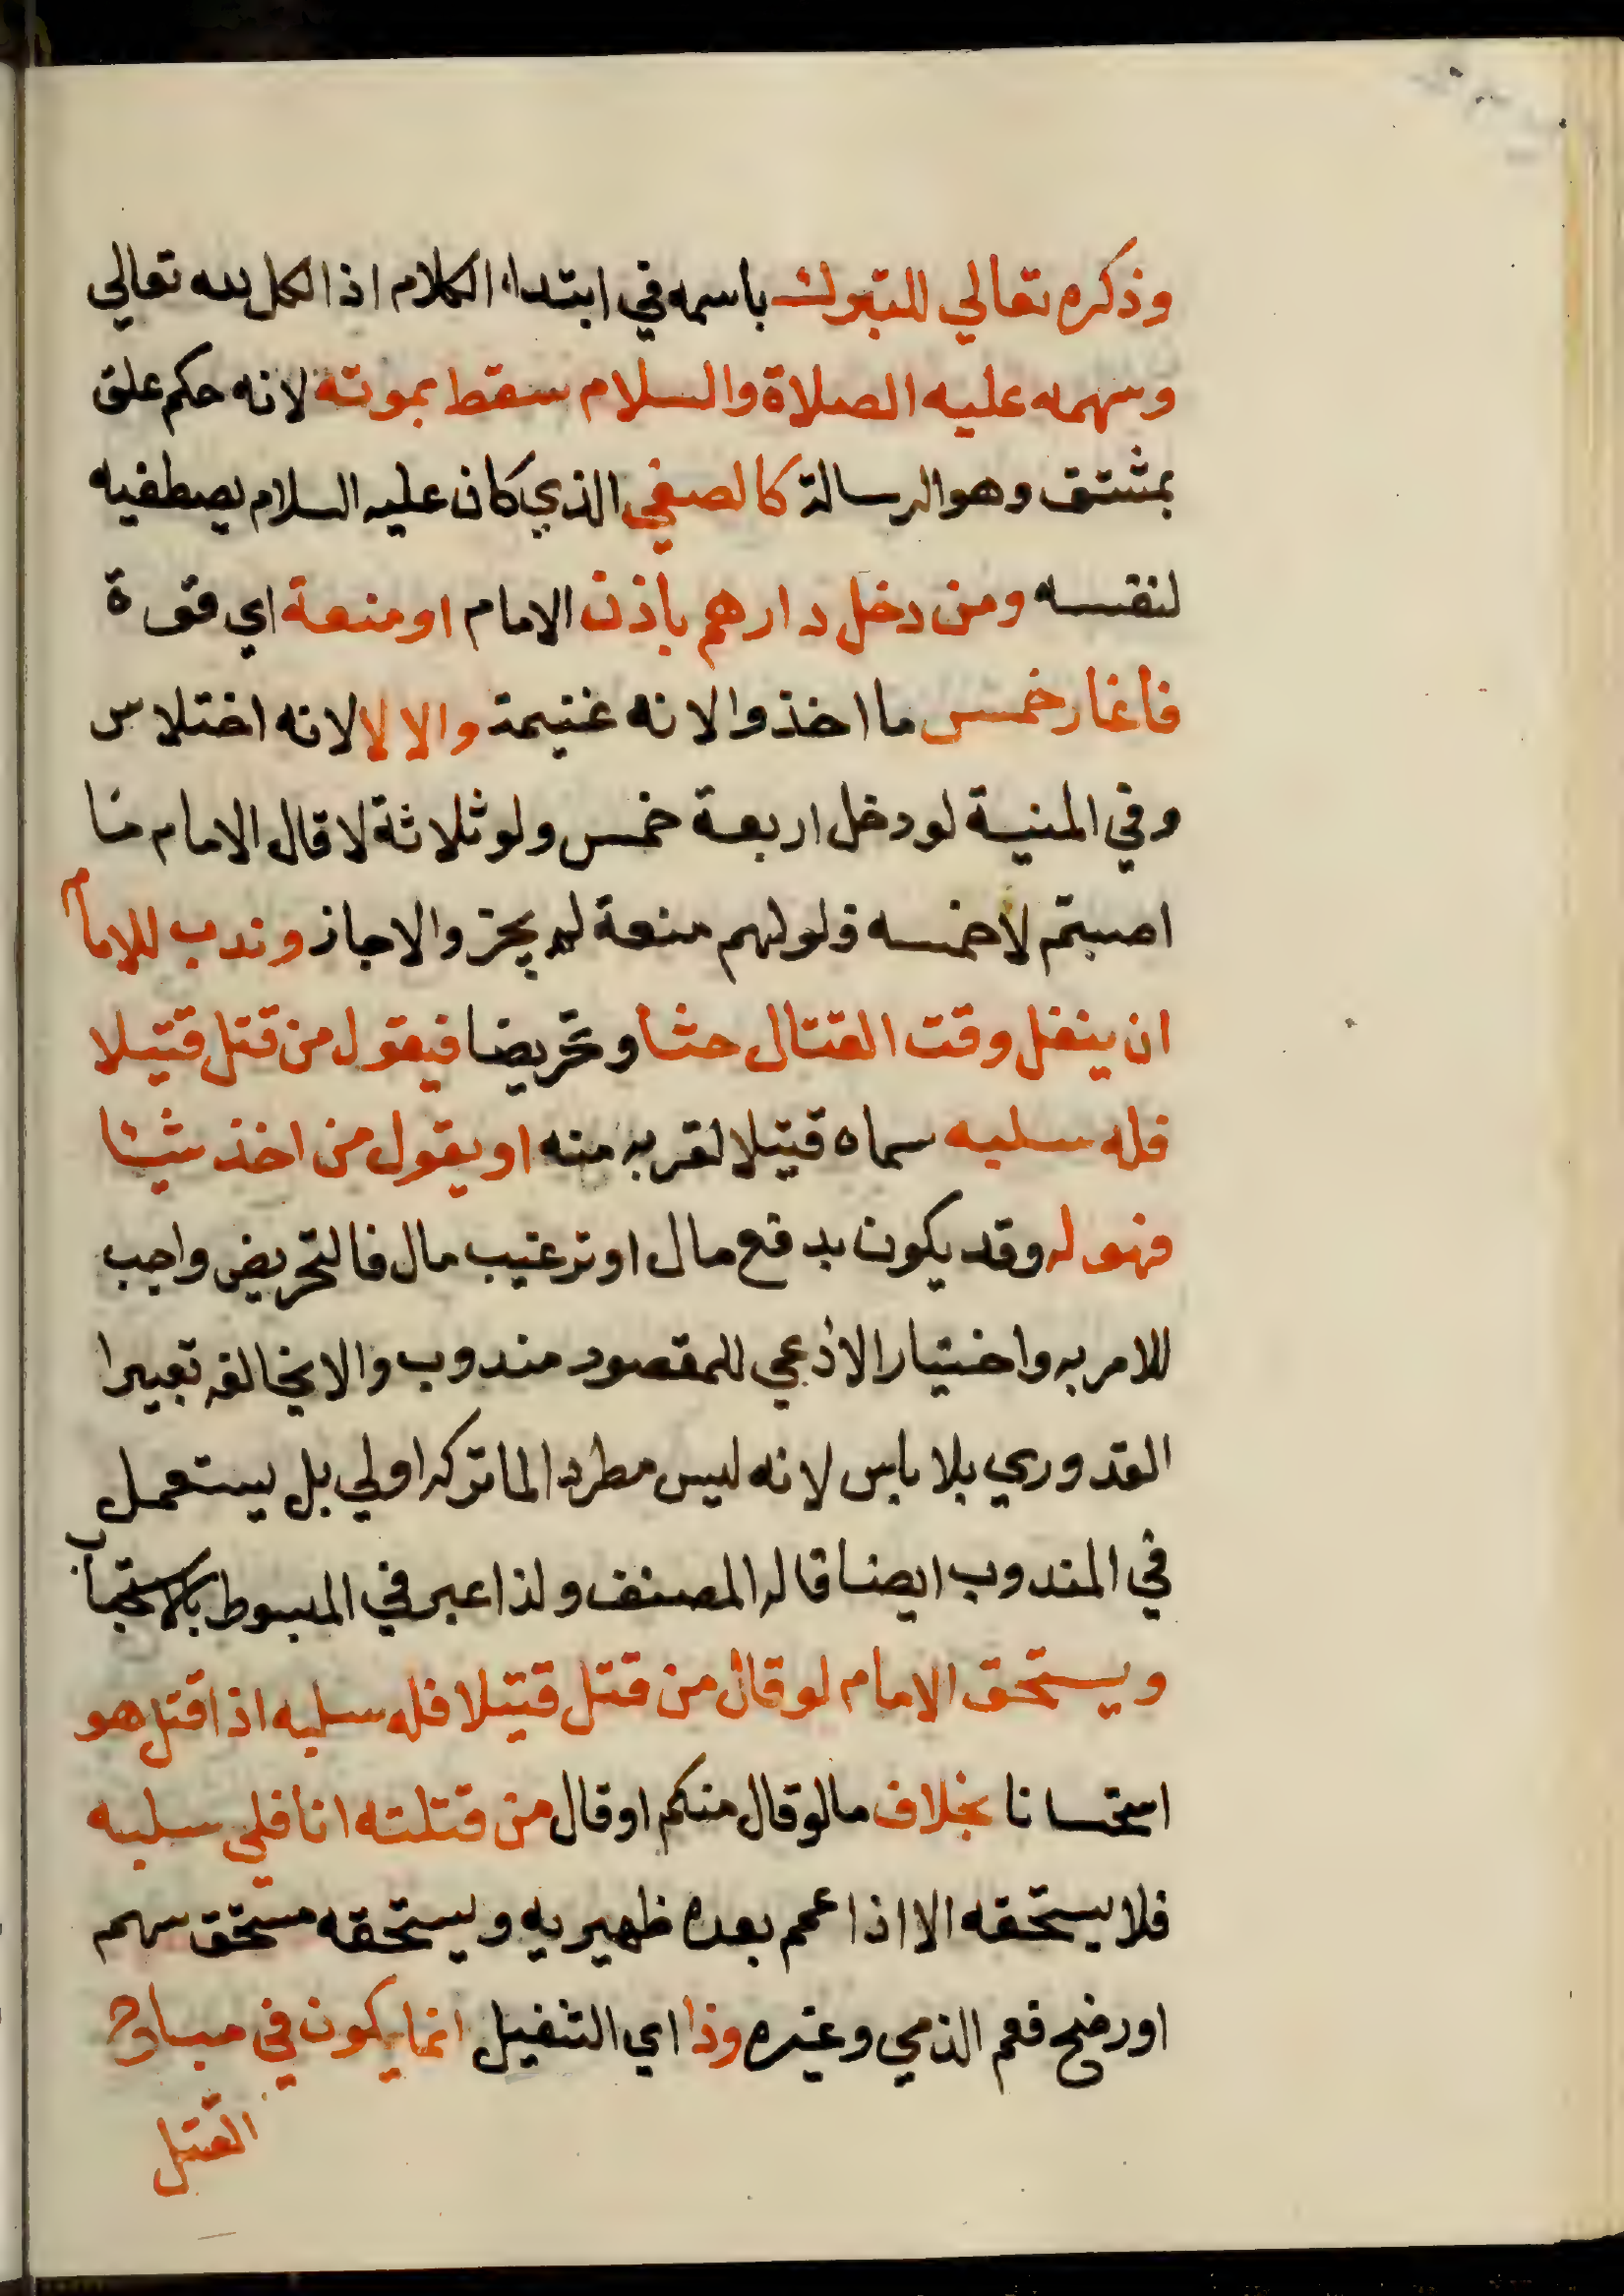 وذكره تعالي للتبرك باسمه في ابتداء الكلام اذ الكل لله تعالي
وسهمه عليه الصلاة والسلام سقط بموته لانه حكم علق
بمشتق وهو الرسالة كالصفي الذي كان عليه السلام يصطفيه
لنفسه ومن دخل دارهم باذن الامام او منعة اي قوة
فاغار خمس ما اخذوا لانه غنيمة والا لا لانه اختلاس
وفي المنية لو دخل اربعة خمس ولو ثلاثة لا قال الامام ما
اصبتم لا اخمسه فلو لهم منعة لم يجز والا جاز وندب للامام
ان ينفل وقت القتال حثا وتحريضا فيقول من قتل قتيلا
فله سلبه سماه قتيلا لقربه منه او يقول من اخذ شيئا
فهو له وقد يكون بدفع مال او ترغيب مال فالتحريض واجب
للامر به واختيار الادعي للمقصود مندوب والا يخالفه تعبيرا
القدوري بلا باس لانه ليس مطردا لما تركه اولي بل يستعمل
في المندوب ايضا قاله المصنف ولذا عبر في المبسوط بالاستحباب
ويستحق الامام لو قال من قتل قتيلا فله سلبه اذا قتل هو
استحسانا بخلاف ما لو قال منكم او قال من قتلته انا فلي سلبه
فلا يستحقه الا اذا عمم بعده ظهيريه ويستحقه مستحق سهم
او رضخ فعم الذمي وغيره وذا اي التنفيل انما يكون في مباح
القتل